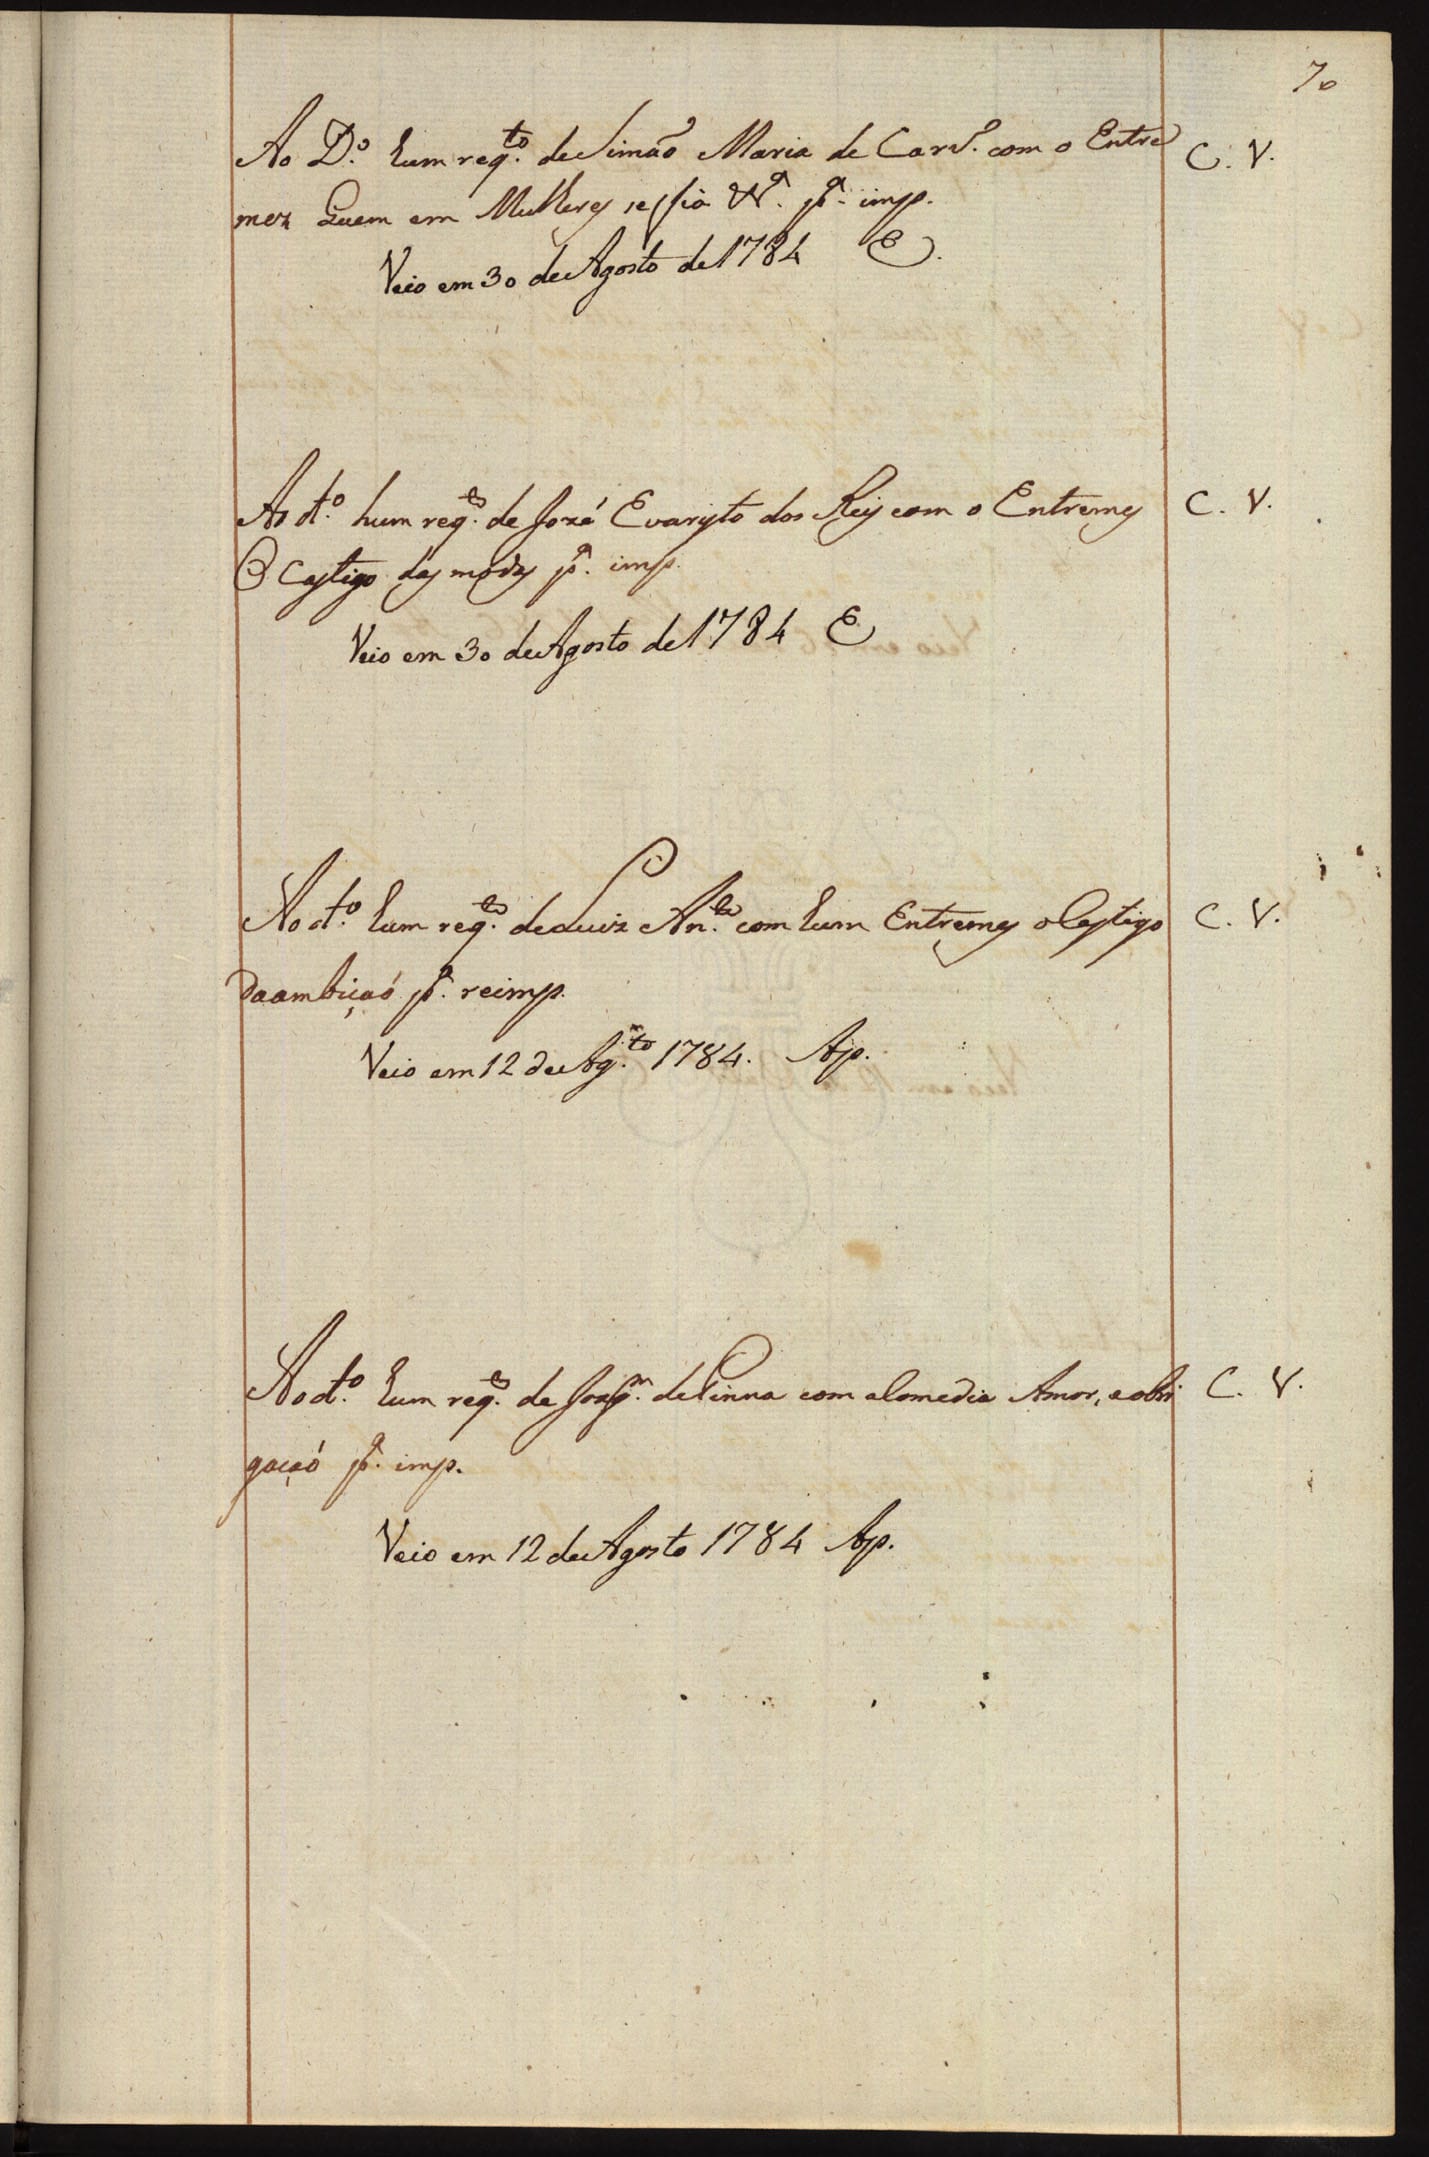 70
Ao D.º hum reqt.º de Simão Maria de Carv.º com o Entre C. V.
mez Quem em Mulheres se fia &.ª p.ª imp.
Veio em 30 de Agosto de 1784 E.
Ao dt.º hum reqt.º de Jozé Evaristo dos Reis com o Entremes C. V.
O Castigo das modas p.ª imp.
Veio em 30 de Agosto de 1784 E
Ao dt.º hum reqt.º de Luiz An.to com hum Entremes o Castigo C. V.
da ambiçaõ p.ª reimp.
Veio em 12 de Ag.to 1784. Ap.
Ao dt.º hum reqt.º de Joaq.m de Pinna com a Comedia Amor, e obri C. V.
gaçaó p.ª imp.
Veio em 12 de Agosto 1784 Ap.